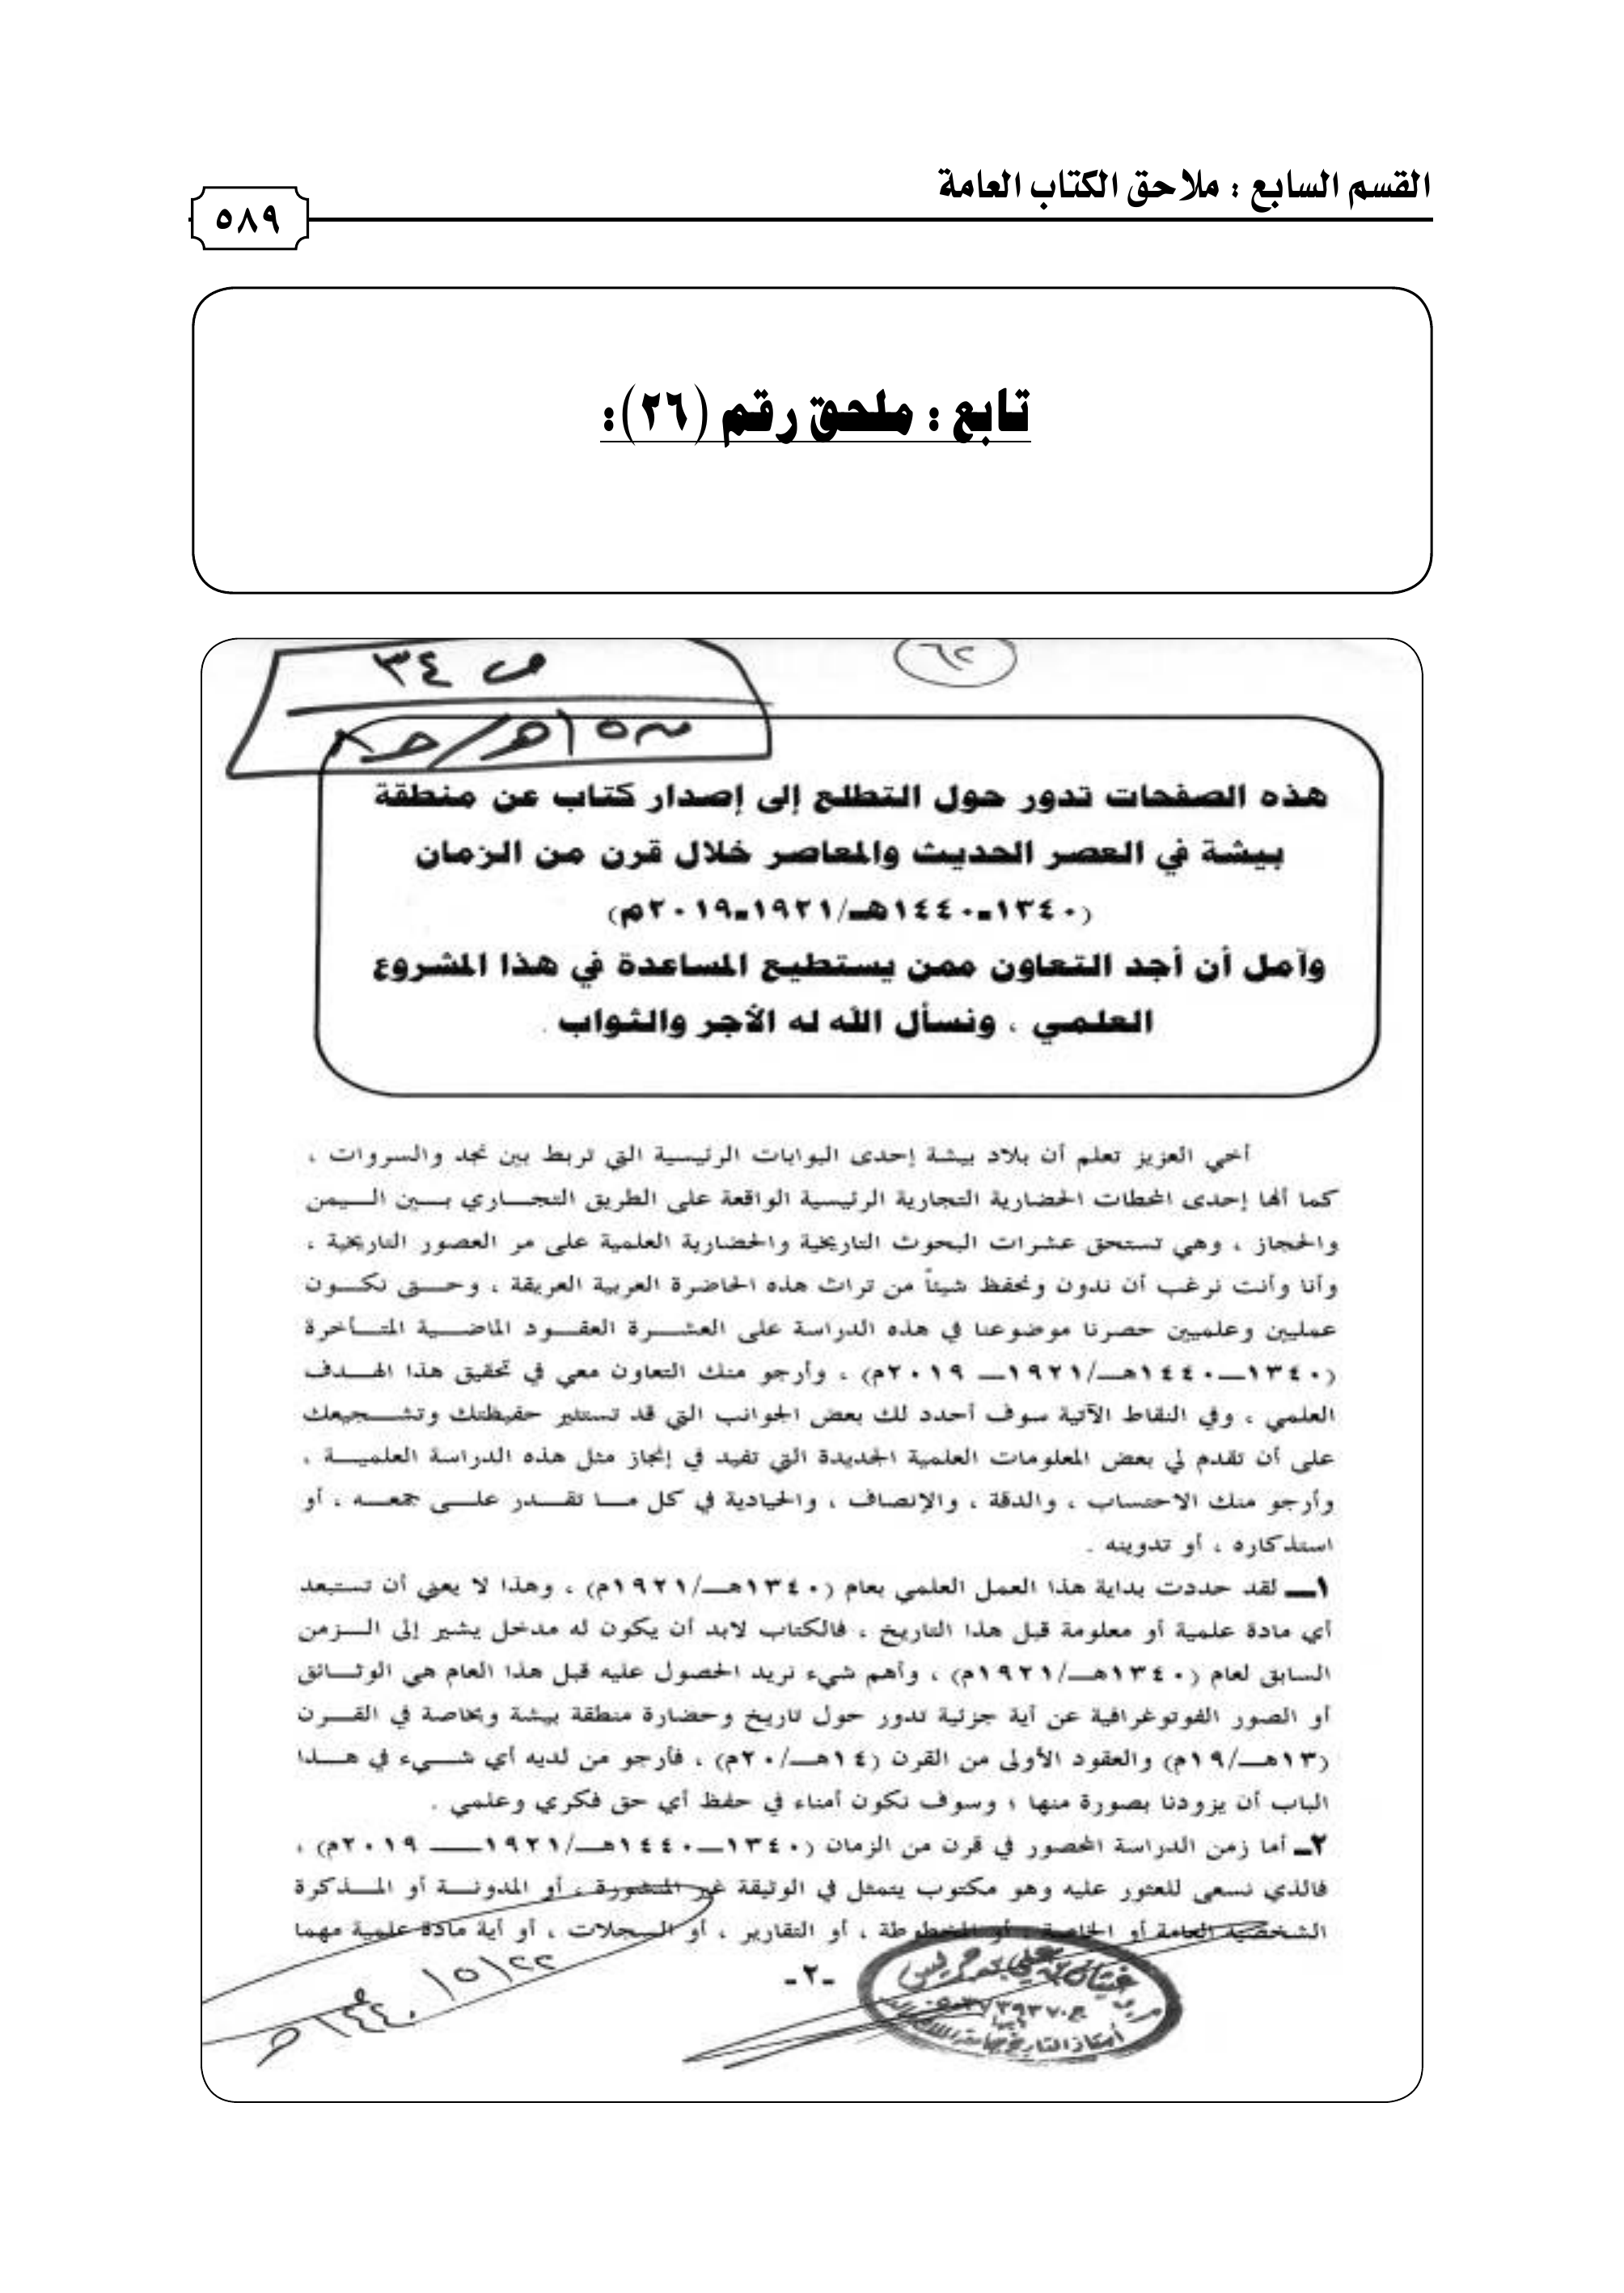 القسم السابع : ملاحق الكتاب العامة
٥٨٩
تابع : ملحق رقم (٢٦):
٦٢
ص ٣٤
هذه الصفحات تدور حول التطلع إلى إصدار كتاب عن منطقة
بيشة في العصر الحديث والمعاصر خلال قرن من الزمان
(١٣٤٠ـ١٤٤٠هـ/١٩٢١ـ٢٠١٩م)
وآمل أن أجد التعاون ممن يستطيع المساعدة في هذا المشروع
العلمي ، ونسأل الله له الأجر والثواب .
أخي العزيز تعلم أن بلاد بيشة إحدى البوابات الرئيسية التي تربط بين نجد والسروات ،
كما أنها إحدى المحطات الحضارية التجارية الرئيسية الواقعة على الطريق التجـاري بـين الـيمن
والحجاز ، وهي تستحق عشرات البحوث التاريخية والحضارية العلمية على مر العصور التاريخية ،
وأنا وأنت نرغب أن ندون ونحفظ شيئاً من تراث هذه الحاضرة العربية العريقة ، وحـتى نكـون
عمليين وعلميين حصرنا موضوعنا في هذه الدراسة على العشـرة العقـود الماضـية المتـأخرة
(١٣٤٠ـ١٤٤٠هـ/١٩٢١ـ ٢٠١٩م) ، وأرجو منك التعاون معي في تحقيق هذا الهـدف
العلمي ، وفي النقاط الآتية سوف أحدد لك بعض الجوانب التي قد تستثير حفيظتك وتشـجيعك
على أن تقدم لي بعض المعلومات العلمية الجديدة التي تفيد في إنجاز مثل هذه الدراسة العلميـة ،
وأرجو منك الاحتساب ، والدقة ، والإنصاف ، والحيادية في كل مـا تقـدر علـى جمعـه ، أو
استذكاره ، أو تدوينه .
١ـ لقد حددت بداية هذا العمل العلمي بعام (١٣٤٠هـ/١٩٢١م) ، وهذا لا يعني أن تستبعد
أي مادة علمية أو معلومة قبل هذا التاريخ ، فالكتاب لابد أن يكون له مدخل يشير إلى الـزمن
السابق لعام (١٣٤٠هـ/١٩٢١م) ، وأهم شيء نريد الحصول عليه قبل هذا العام هي الوثـائق
أو الصور الفوتوغرافية عن أية جزئية تدور حول تاريخ وحضارة منطقة بيشة وبخاصة في القـرن
(١٣هـ/١٩م) والعقود الأولى من القرن (١٤هـ/٢٠م) ، فأرجو من لديه أي شـيء في هـذا
الباب أن يزودنا بصورة منها ؛ وسوف نكون أمناء في حفظ أي حق فكري وعلمي .
٢ـ أما زمن الدراسة المحصور في قرن من الزمان (١٣٤٠ـ١٤٤٠هـ/١٩٢١ـ ٢٠١٩م) ،
فالذي نسعى للعثور عليه وهو مكتوب يتمثل في الوثيقة غير المنشورة ، أو المدونـة أو المـذكرة
الشخصية العامة أو الخاصة ، أو المخطوطة ، أو التقارير ، أو السجلات ، أو أية مادة علمية مهما
-٢-
غيثان بن علي بن جريس
أستاذ التاريخ
٢٢/٥/١٤٤٠هـ